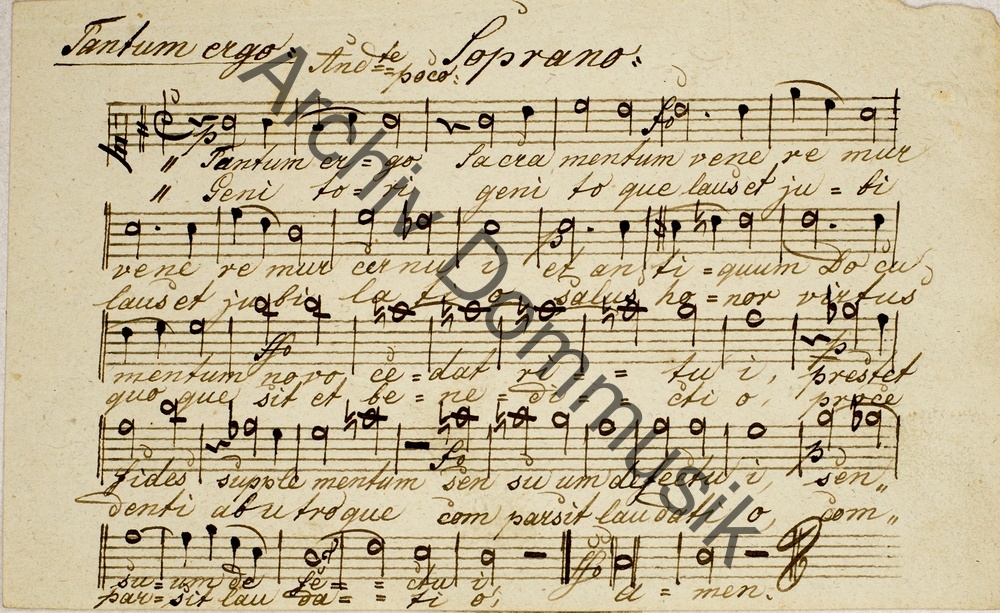 Tantum ergo: And=te poco: Soprano:
p fo
" Tantum er = go Sacra mentum vene re mur
" Geni to = ri geni to que laus et ju = bi
p
vene re mur cer nu i et an ti = quum Do cu
laus et ju bi la ti o, salus ho = nor virtus
ffo p
mentum novo ce = dat ri = = tu i, prestet
quo que sit et be = ne = di = cti o, proce
fo p
fides supple mentum sen su um defectu i, sen„
denti ab utroque com par sit lau dati o, com„
ffo
su = um de fe = = ctu i,
par = sit lau da = = ti o, a = men.
Archiv Dommusik